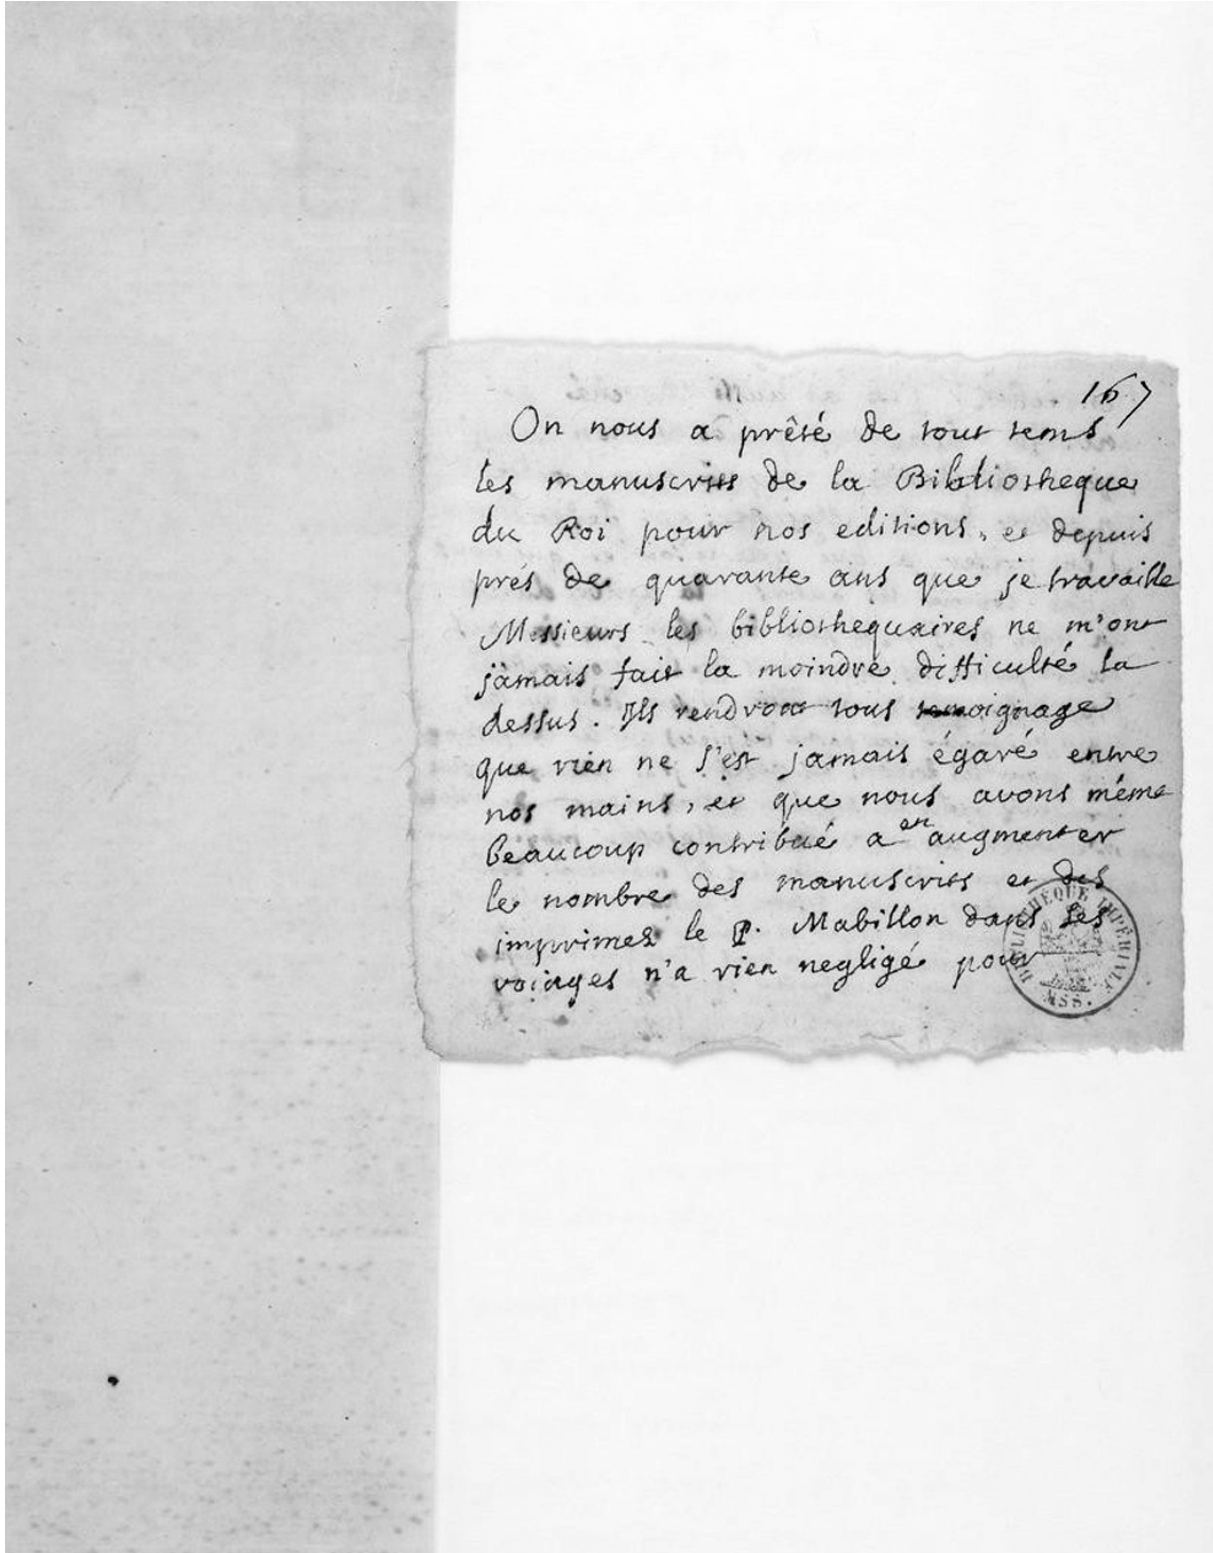 167
On nous a prêté de tout tems
les manuscrits de la Bibliotheque
du Roi pour nos editions, et depuis
prés de quarante ans que je travaille
Messieurs les bibliothequaires ne m'ont
jamais fait la moindre difficulté la
dessus. Ils rendront tous temoignage
que rien ne s'est jamais égaré entre
nos mains, et que nous avons méme
beaucoup contribué a en augmenter
le nombre des manuscrits et des
imprimez le P. Mabillon dans ses
voiages n'a rien negligé pour
BIBLIOTHÈQUE IMPÉRIALE
MSS.